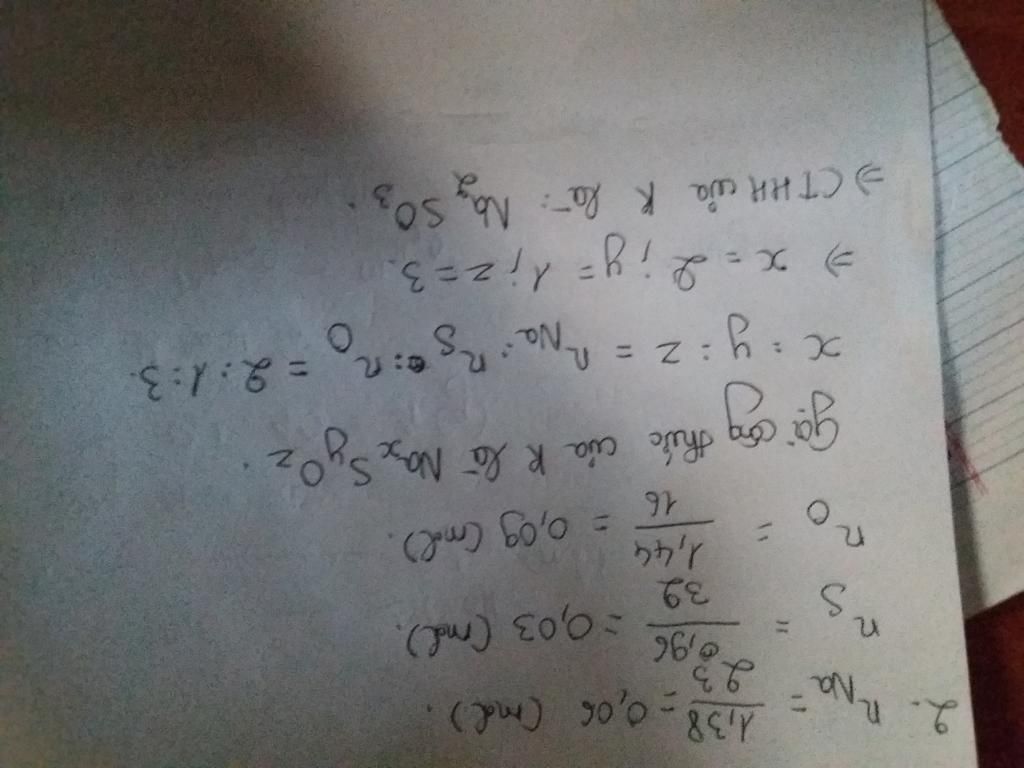 2. nNa = 1,38/23 = 0,06 (mol).
nS = 0,96/32 = 0,03 (mol).
nO = 1,44/16 = 0,09 (mol).
gọi công thức của K là NaxSyOz.
x : y : z = nNa : nS : nO = 2 : 1 : 3.
⇒ x = 2 ; y = 1 ; z = 3.
⇒ CTHH của K là : Na2SO3.